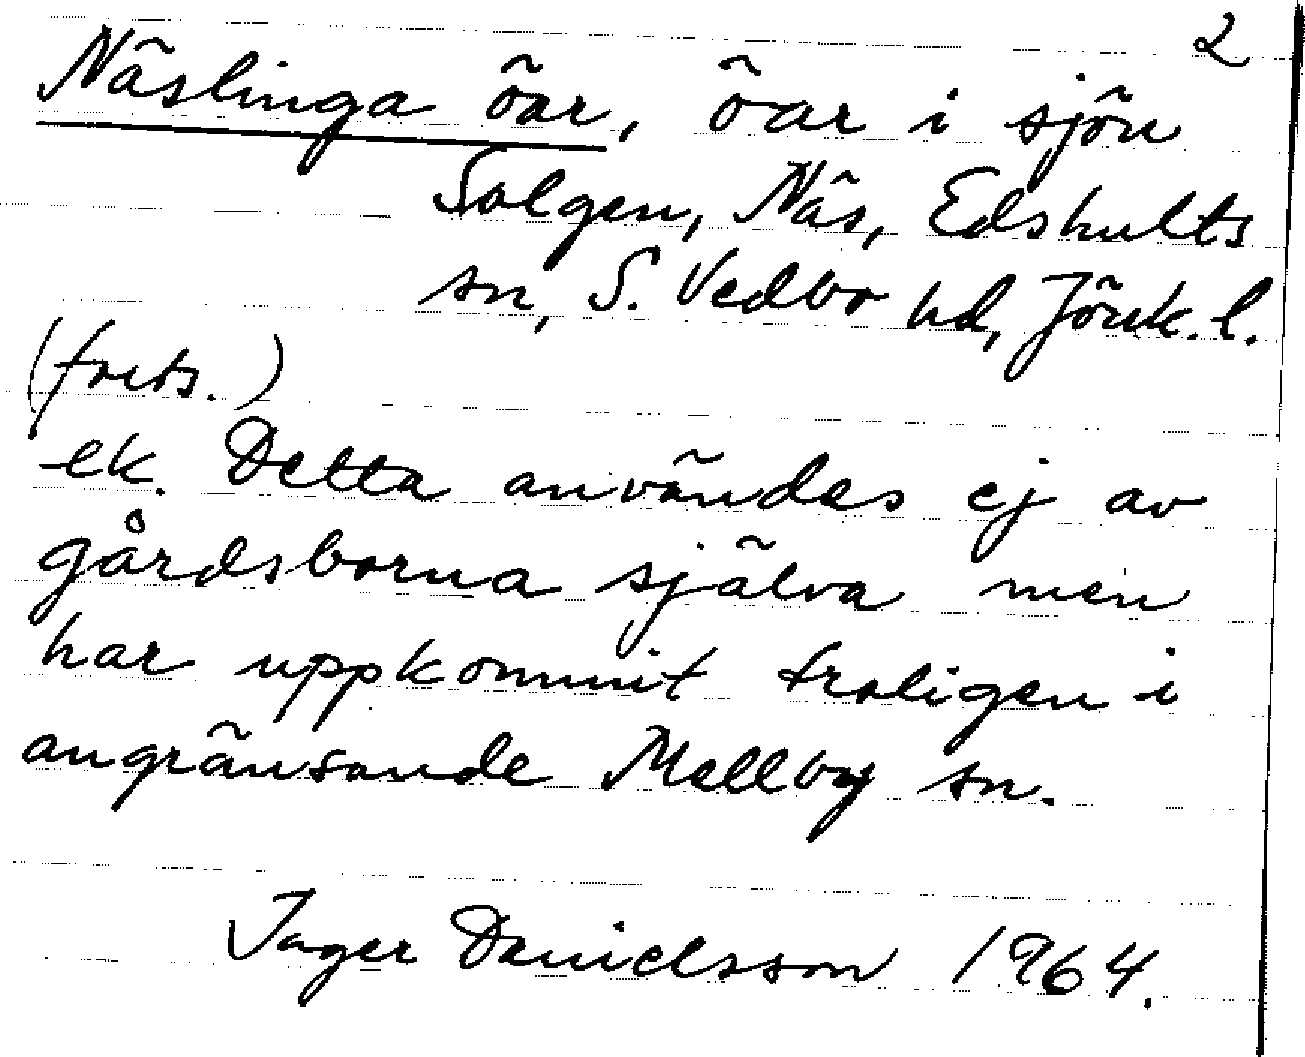 2
Näslinga öar, öar i sjön
Solgen, Näs, Edshults
sn, S. Vedbo hd, Jönk. l.
(forts.)
ek. Detta användes ej av
gårdsborna själva men
har uppkommit troligen i
angränsande Mellby sn.
Inger Danielsson 1964.